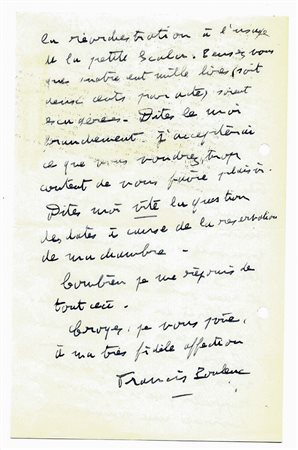 la réorchestration à l'usage
de la petite Scala. Pensez vous
que quatre cent mille lires (soit
deux cents par acte) soient
exagérées. Dites le moi
franchement. J'accepterai
ce que vous voudrez, trop
content de vous faire plaisir.
Dites moi vite la question
des dates à cause de la reservation
de ma chambre.
Combien je me réjouis de
tout cela.
Croyez, je vous prie,
à ma très fidèle affection
Francis Poulenc